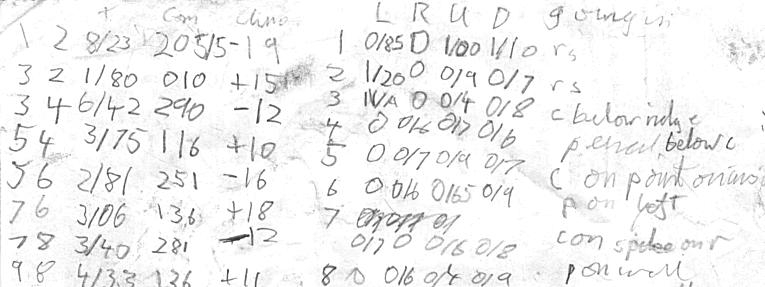 T Com Clino L R U D going in
1 2 8/23 205/5 -19 1 0/85 0 1/00 1/10 rs
3 2 1/80 010 +15 2 1/20 0 0/9 0/7 rs
3 4 6/42 290 -12 3 N/A 0 0/4 0/8 c below ridge
5 4 3/75 116 +10 4 0 0/6 0/7 0/6 pencil below c
5 6 2/81 251 -16 5 0 0/7 0/9 0/7 c on point on
7 6 3/06 136 +18 6 0 0/6 0/65 0/9 p on left
7 8 3/40 281 -12 7 0/7 0 0/6 0/8 c on spike our
9 8 4/33 136 +11 8 0 0/6 0/4 0/9 p on wall